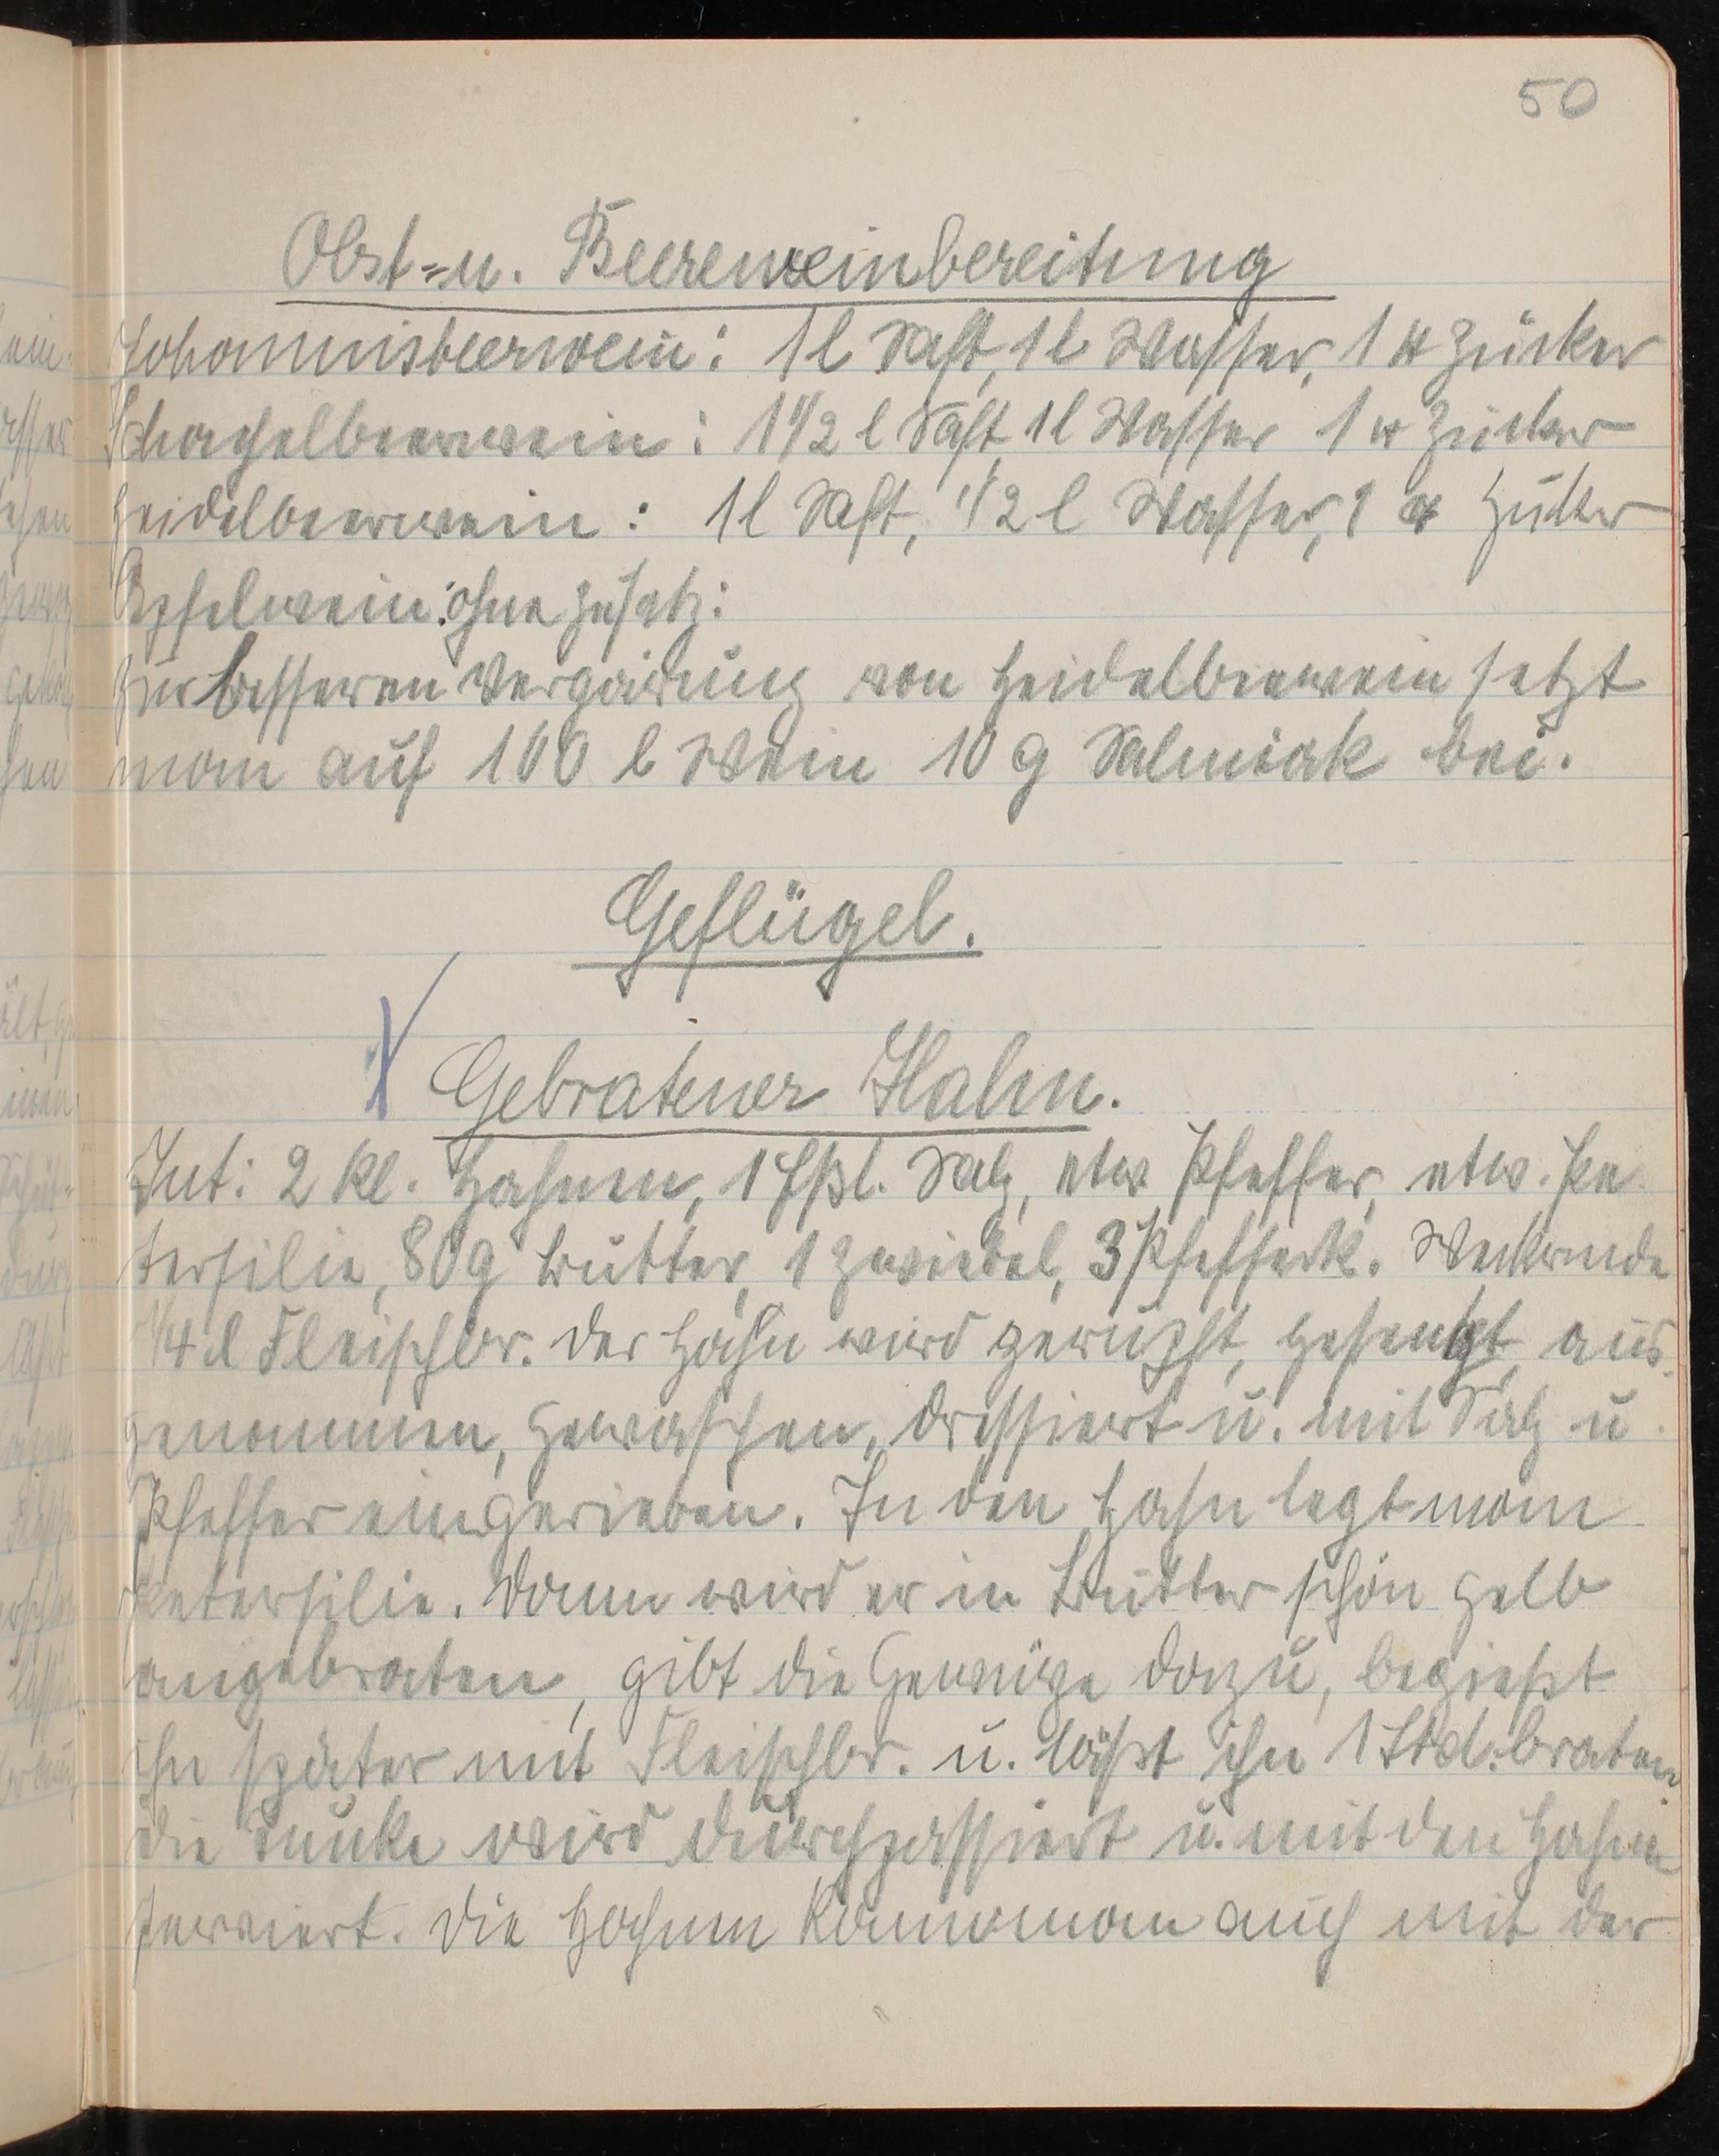 50
Obst- u. Beerenweinbereitung
Johannisbeerwein: 1 l Saft, 1 l Wasser, 1 ℔ Zucker
Stachelbeerwein: 1 1/2 l Saft 1 l Wasser 1 ℔ Zucker
Heidelbeerwein: 1 l Saft, 1/2 l Wasser, 1 ℔ Zucker
Apfelwein: ohne Zusatz:
Zur besseren Vergärung von Heidelbeerwein setzt
man auf 100 l Wein 10 g Salmiak bei.
Geflügel.
Gebratener Hahn.
Zut: 2 kl. Hahnen, 1 Eßl. Salz, etw Pfeffer, etw. Pe
tersilie, 80 g Butter, 1 Zwiebel, 3 Pfefferk. Weckrinde
1/4 l Fleischbr. Der Hahn wird gerupft, gesengt, aus-
genommen, gewaschen, dressiert u. mit Salz u.
Pfeffer eingerieben. In den Hahn legt man
Petersilie. Dann wird er in Butter schön gelb
angebraten, gibt die Gewürze dazu, begießt
ihn später mit Fleischbr. u. läßt ihn 1 Std. braten
die Tunke wird durchpassiert u. mit den Hahnen
serviert. Die Hahnen kann man auch mit der